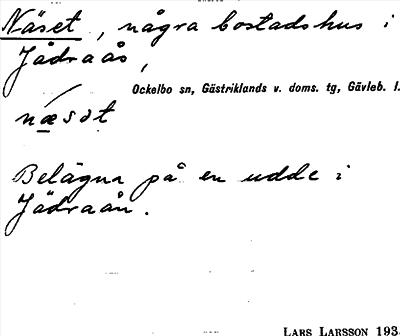 Näset, några bostadshus i
Jädraås,
Ockelbo sn, Gästriklands v. doms. tg, Gävleb. l.
næsət
Belägna på en udde i
Jädraån.
LARS LARSSON 193